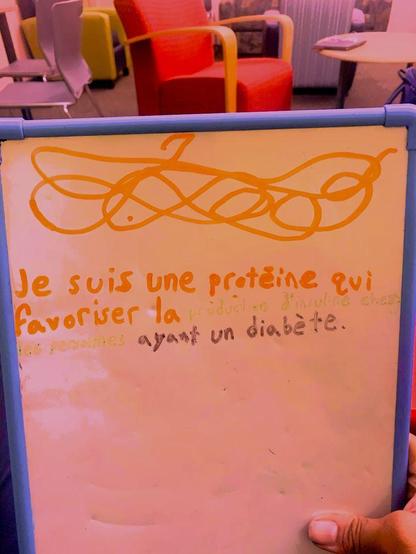 Je suis une protéine qui
favoriser la production d'insuline chez
des personnes ayant un diabète.